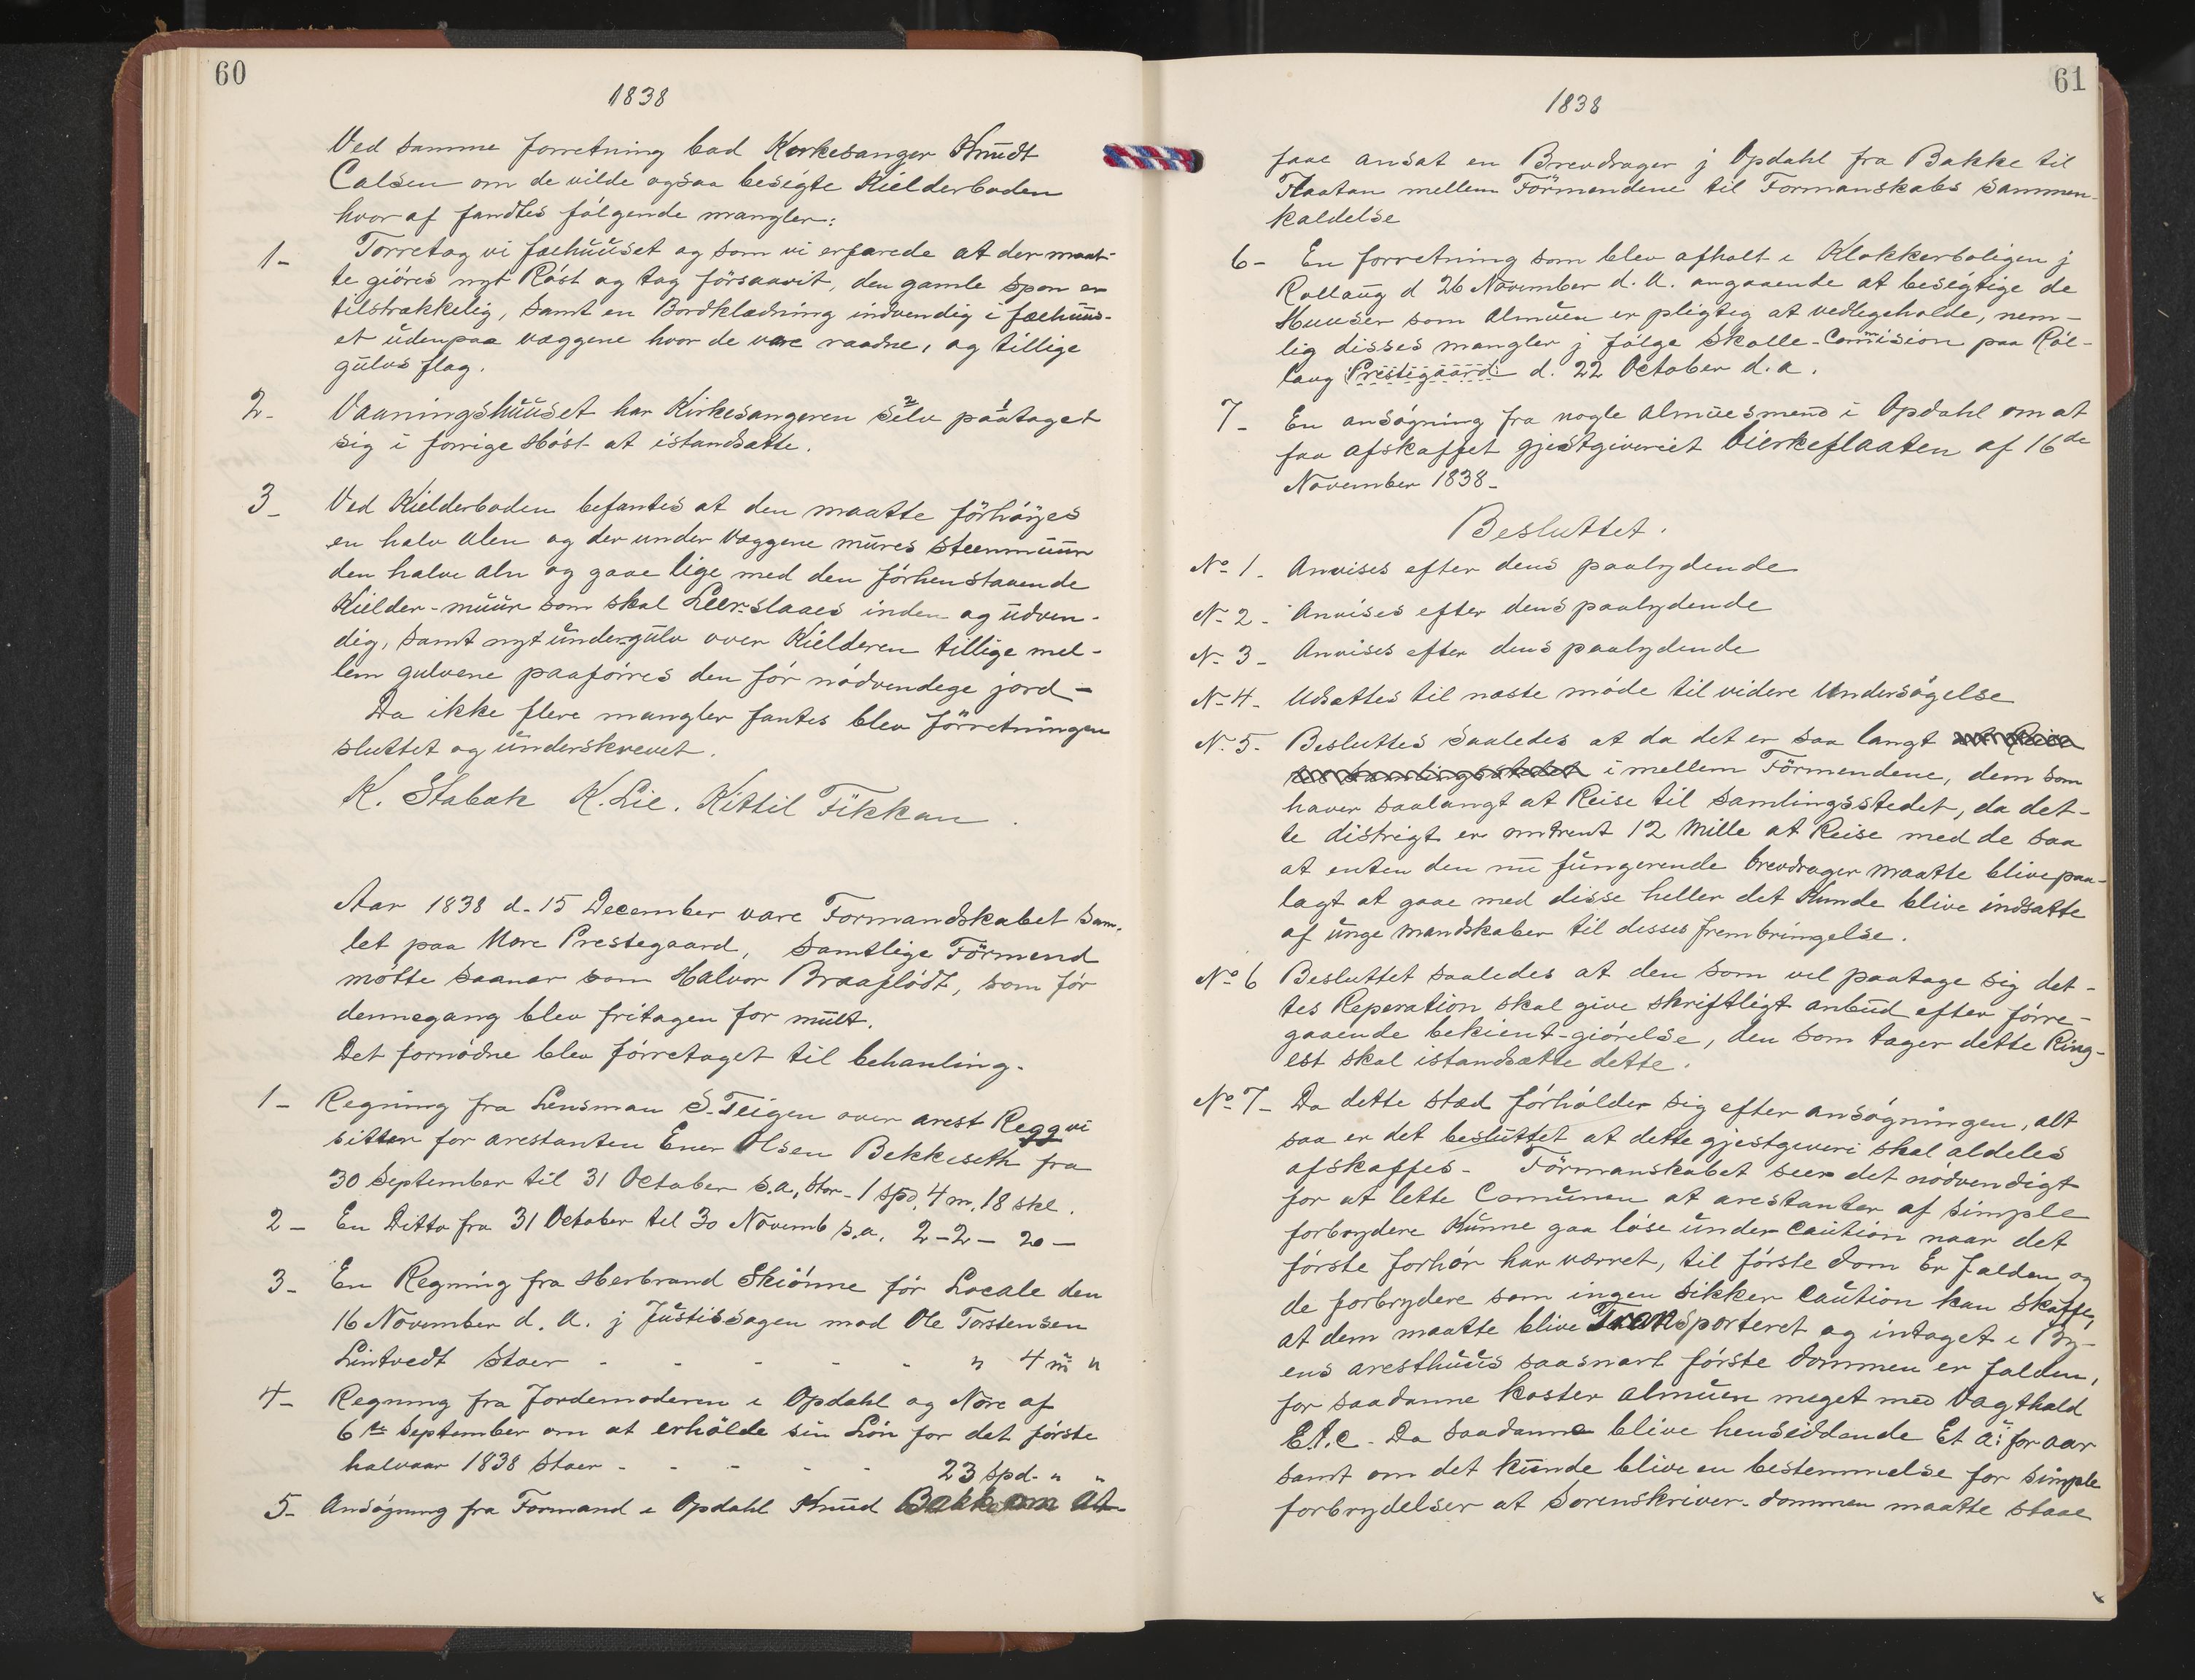 60
1838
Ved samme forretning bad Kerkesanger Knudt
Calsen om de vilde ogsaa besigte Kielderboden
hvor af fandtes følgende mangler:
1- Torretog vi fæhuuset og som vi erfarede at der maat-
te giöres nyt Röst og tag försaavit, den gamle spon er
tilstrakkelig, samt en Bordklædning indvendig i fæhuus-
et udenpaa væggene hvor de vare raadne, og tillige
gulvs flag.
2- Vaaningshuuset har Kirkesangeren selv paataget
sig i forrige Höst at istandsatte.
3- Ved Kielderboden befantes at den maatte förhöyes
en halv alen og der under Væggene mures steenmuur
den halve aln og gaae lige med den förhenstaaende
Kielder-muur som skal Leerslaaes inden og udven-
dig, samt nyt undergulv over Kielderen tillige mel-
lem gulvene paaförres den för nödvendege jord -
Da ikke flere mangler fantes blev förretningen
sluttet og underskrevet.
K. Stabæk K. Lie. Kittil Fikkan.
Aar 1838 d. 15 December vare Formandskabet sam-
let paa Nore Prestegaard, samtlige Förmend
mötte saanær som Halvor Braaflödt, som för
dennegang blev fritagen for mult.
Det fornödne blev förretaget til behanling.
1- Regning fra Lensman S. Teigen over arest Reqqvi
sitter for arestanten Ener Olsen Bekkeseth fra
30 September til 31 October s.a., stor - 1 spd, 4 m, 18 skl.
2- En Ditto fra 31 October tel 30 Novemb s.a. 2-2- 20 -
3- En Regning fra Herbrand Skiönne för Locale den
16 November d. A. j Justissagen mod Ole Torstensen
Lintvedt staer - - - - - " 4 m "
4- Regning fra Jordemoderen i Opdahl og Nore af
6te September om at erhölde sin Lön for det förste
halvaar 1838 staer - - - - - 23 spd. " "
5- Ansögning fra Formand i Opdahl Knud Bakke om at
61
1838
faae ansat en Brevdrager j Opdahl fra Bakke til
Flaatan mellem Förmendene til Formanskabs sammen-
kaldelse
6- En forretning som blev afholt i Klokkerboligen j
Rollaug d 26 November d. A. angaaende at besigtige de
Huuser som almuen er pligtig at vedlegeholde, nem-
lig disses mangler j fölge Skolle-Commision paa Röl-
laug Prestegaard d. 22 October d.a.
7- En ansögning fra nogle almuesmend i Opdahl om at
faa afskaffet gjestgiveriet Bierkeflaaten af 16de
November 1838-
Besluttet.
No 1- Anvises efter dens paalydende
N. 2- Anvises efter dens paalydende
N. 3- Anvises efter dens paalydende
N. 4- Udsattes til næste möde til videre Undersögelse
N. 5- Besluttes saaledes at da det er saa langt
i mellem Förmendene, dem som
haver saalangt at Reise til samlingsstedet, da det-
te distrigt er omtrent 12 Mille at Reise med de saa
at enten den nu fungerende brevdrager maatte blive paa-
lagt at gaae med disse heller det Kunde blive indsatte
af unge mandskaber til desses frembringelse.
No 6 Besluttet saaledes at den som vel paatage sig det-
tes Reperation skal give skriftligt anbud efter förre-
gaaende bekient-giörelse, den som tager dette Ring-
est skal istandsætte dette.
No 7- Da dette stæd förhölder sig efter ansögningen, alt
saa er det besluttet at dette gjestgeveri skal aldeles
afskaffes - Förmanskabet seer det nödvendigt
for at lette Comunen at arestanter af simple
forbrydere Kunne gaa löse under Caution naar det
förste forhör har værret, til förste dom Er falden, og
de forbrydere som ingen sikker Caution kan skaffe,
at dem maatte blive Transporteret og intaget i By-
ens aresthuus saasnart förste dommen er falden,
for saadanne koster almuen meget med Vagthold
Et.c - Da saadanne blive hensiddende Et a: for aar
samt om det kunde blive en bestemmelse for simple
forbrydelser at Sorenskriver-dommen maatte staae